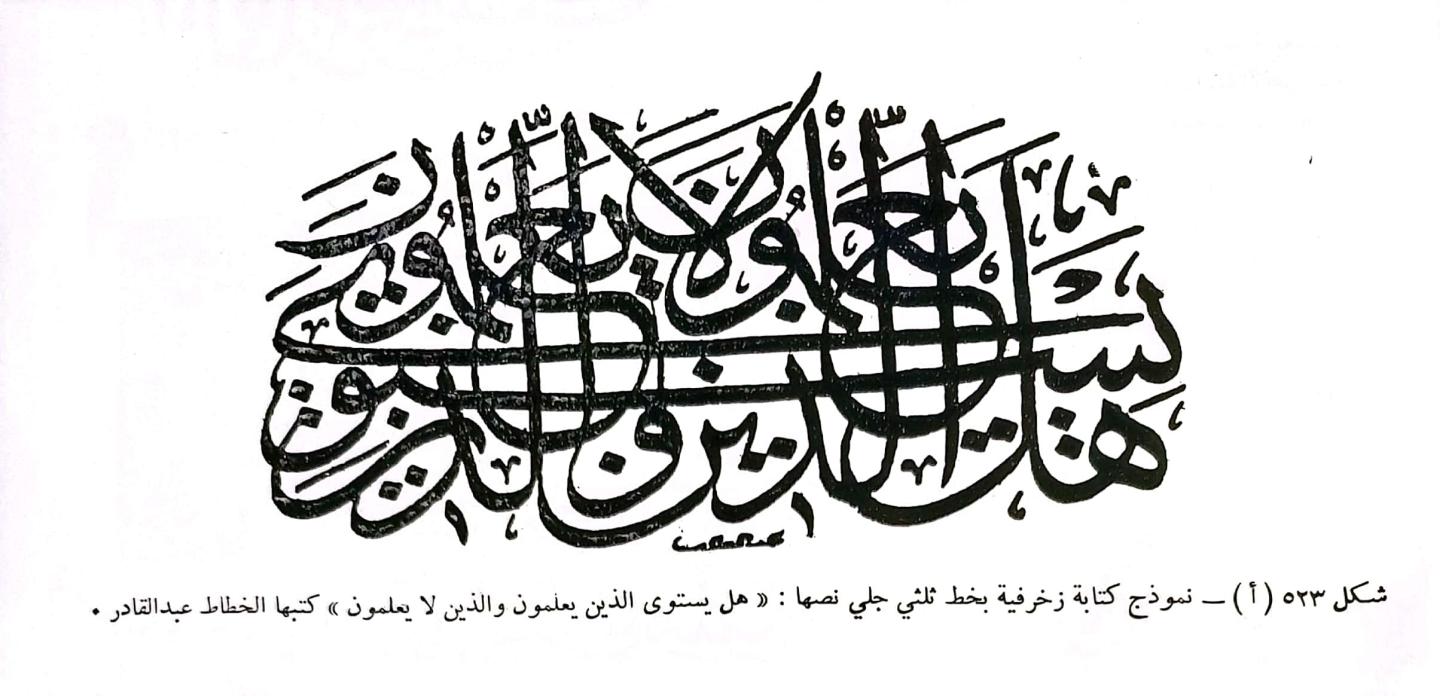 هل يستوى الذين يعلمون والذين لا يعلمون
شكل ٥٢٣ (أ) ــ نموذج كتابة زخرفية بخط ثلثي جلي نصها : « هل يستوى الذين يعلمون والذين لا يعلمون » كتبها الخطاط عبدالقادر •